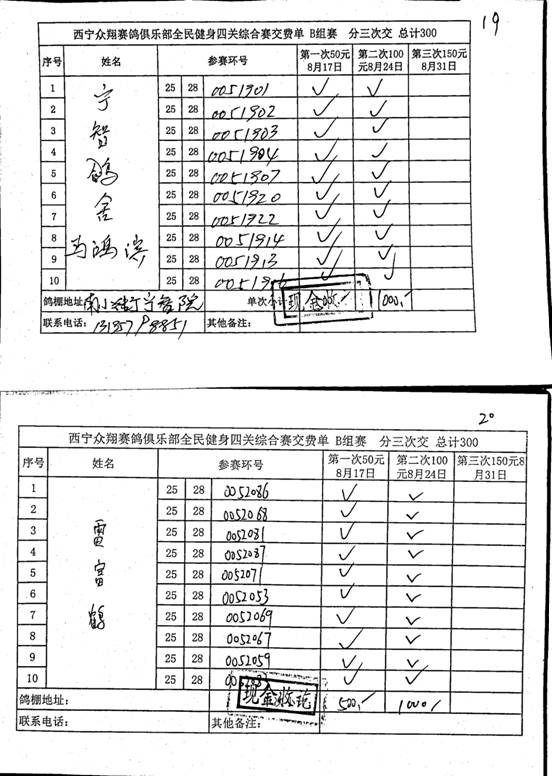 19
西宁众翔赛鸽俱乐部全民健身四关综合赛交费单 B组赛 分三次交 总计300
序号 姓名 参赛环号 第一次50元 8月17日 第二次100元8月24日 第三次150元 8月31日
宁智鸽舍
1 25 28 0051901 ✓ ✓
2 25 28 0051902 ✓ ✓
3 25 28 0051903 ✓ ✓
4 25 28 0051904 ✓ ✓
5 25 28 0051907 ✓ ✓
6 25 28 0051920 ✓ ✓
7 25 28 0051922 ✓ ✓
8 25 28 0051914 ✓ ✓
9 25 28 0051913 ✓ ✓
10 25 28 ✓ ✓
鸽棚地址: 单次小计 现金 1000
联系电话: 其他备注:
20
西宁众翔赛鸽俱乐部全民健身四关综合赛交费单 B组赛 分三次交 总计300
序号 姓名 参赛环号 第一次50元 8月17日 第二次100元8月24日 第三次150元8月31日
雷富鹤
1 25 28 0052086 ✓ ✓
2 25 28 0052068 ✓ ✓
3 25 28 0052081 ✓ ✓
4 25 28 0052087 ✓ ✓
5 25 28 0052071 ✓ ✓
6 25 28 0052053 ✓ ✓
7 25 28 0052069 ✓ ✓
8 25 28 0052067 ✓ ✓
9 25 28 0052059 ✓ ✓
10 25 28 ✓ ✓
鸽棚地址: 现金收讫 500 1000
联系电话: 其他备注: